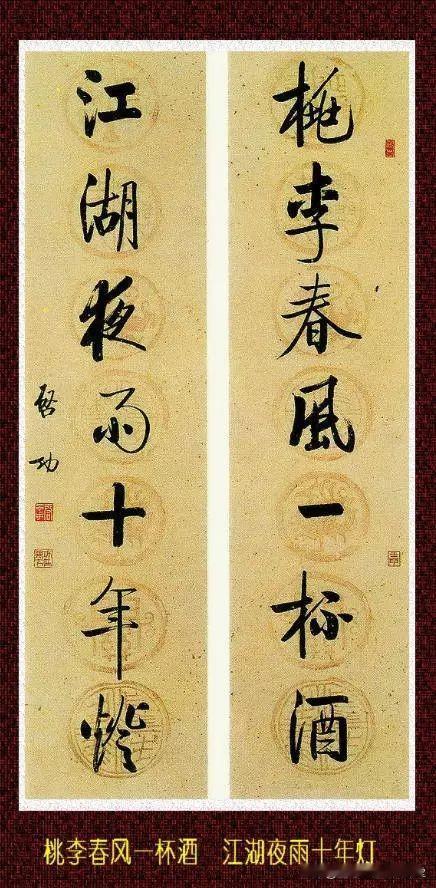 桃李春風一杯酒
江湖夜雨十年燈
啓功
桃李春风一杯酒 江湖夜雨十年灯